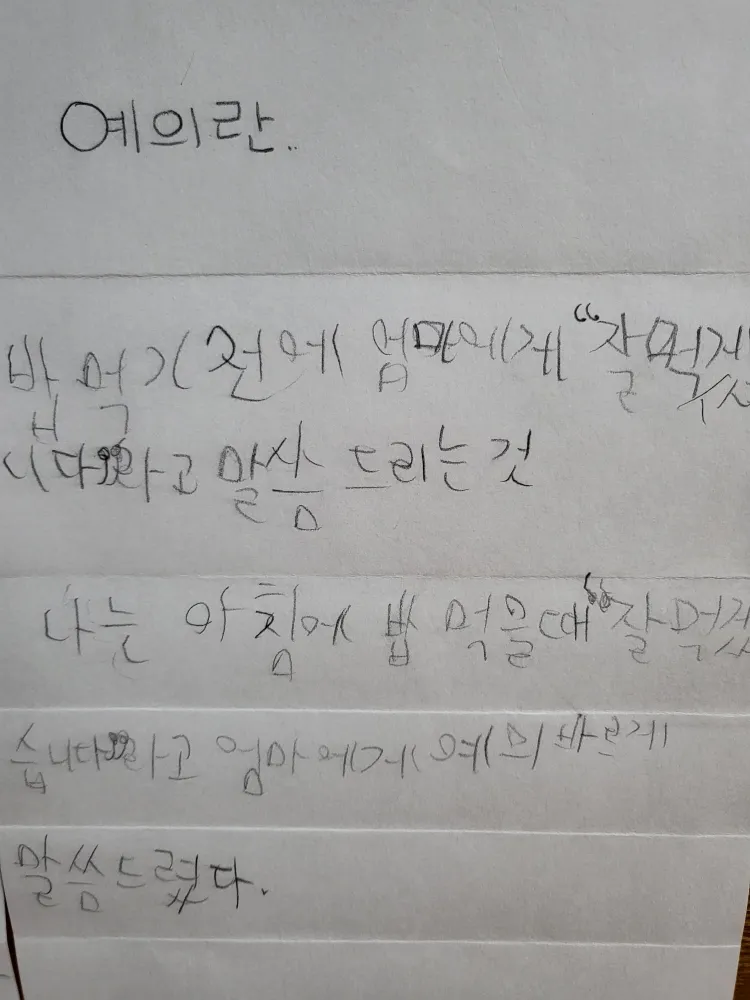 예의란..
밥 먹기 전에 엄마에게 “잘 먹겠
니다”라고 말씀 드리는 것
나는 아침에 밥 먹을때 “잘 먹겠
습니다”라고 엄마에게 예의 바르게
말씀드렸다.